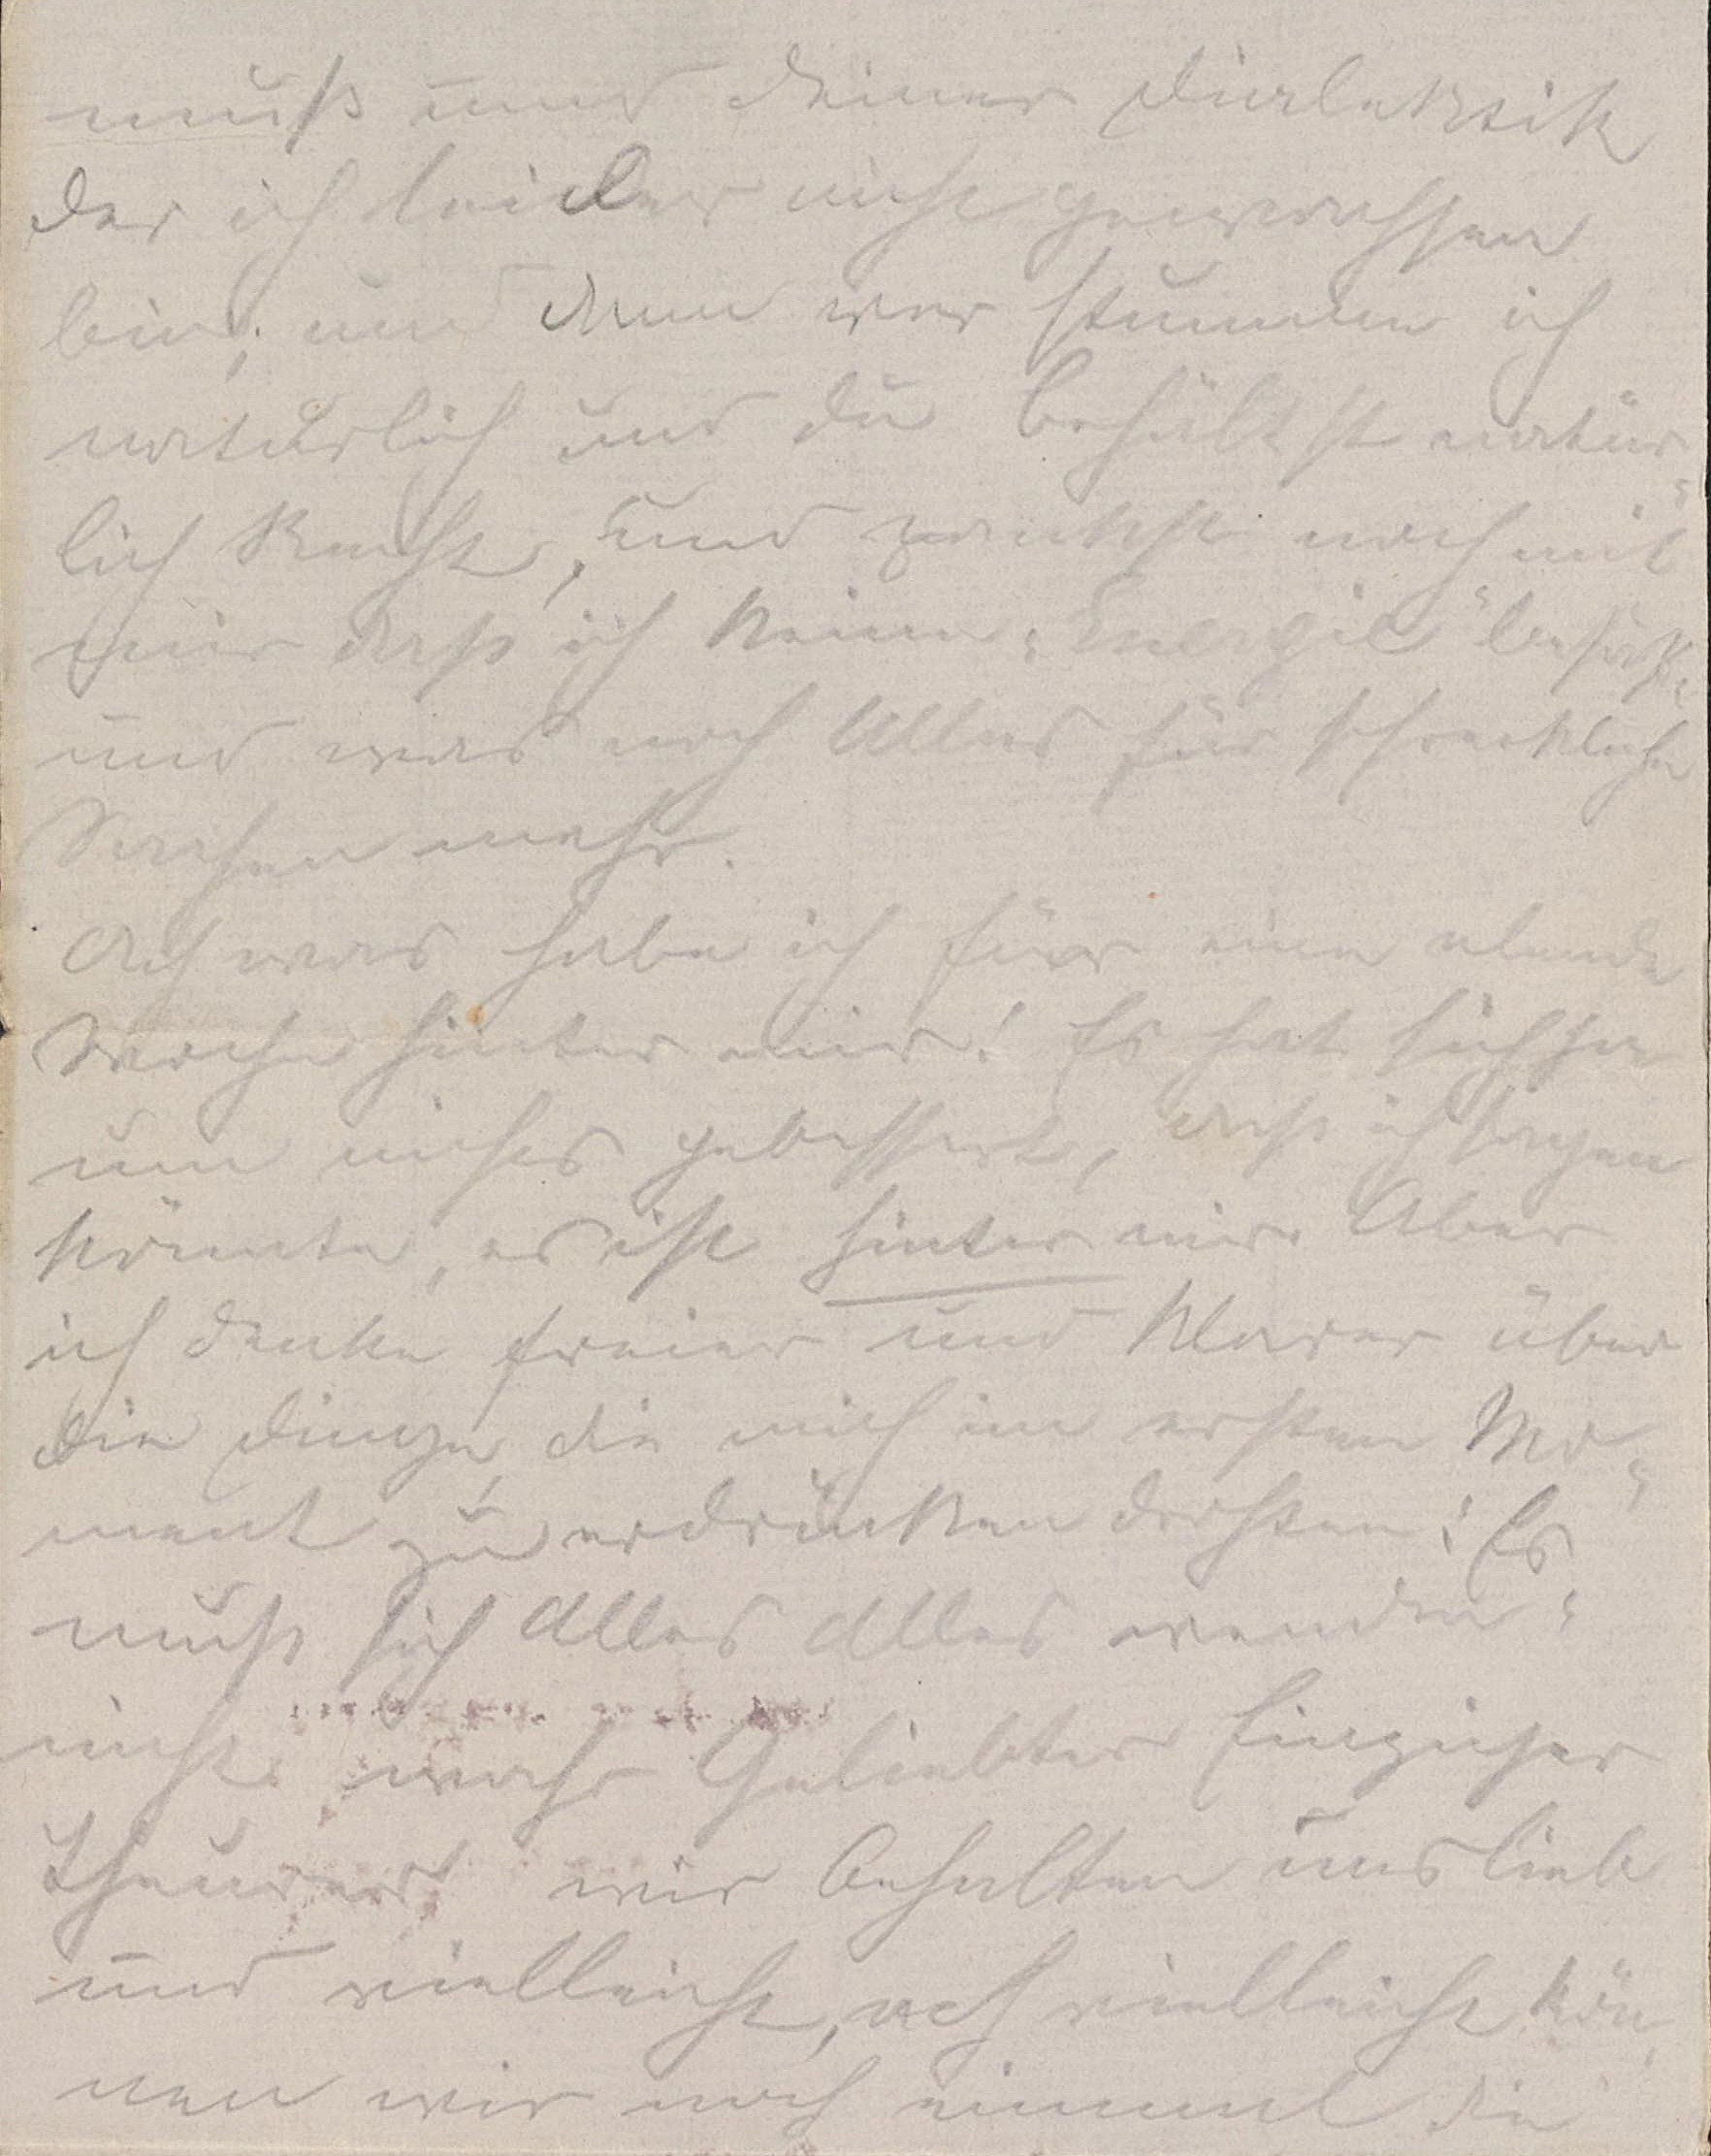 muß und deiner Dialektik
der ich leider nicht gewachsen
bin; und dann verstumme ich
natürlich und du behältst natür-
lich Recht, und zankst noch mit
mir daß ich keine „Energie" besäße
und was noch Alles für schreckliche
Sachen mehr.
Ach was habe ich für eine elende
Woche hinter mir! Es hat sich ja
um nichts gebessert, daß ich sagen
könnte, es ist hinter mir. Aber
ich denke freier und klarer über
die Dinge, die mich im ersten Mo-
ment zu erdrücken drohten! Es
muß sich Alles Alles wenden!
nicht wahr Geliebter Einziger
theurer wir behalten uns lieb
und vielleicht, ach vielleicht kön-
nen wir noch einmal die